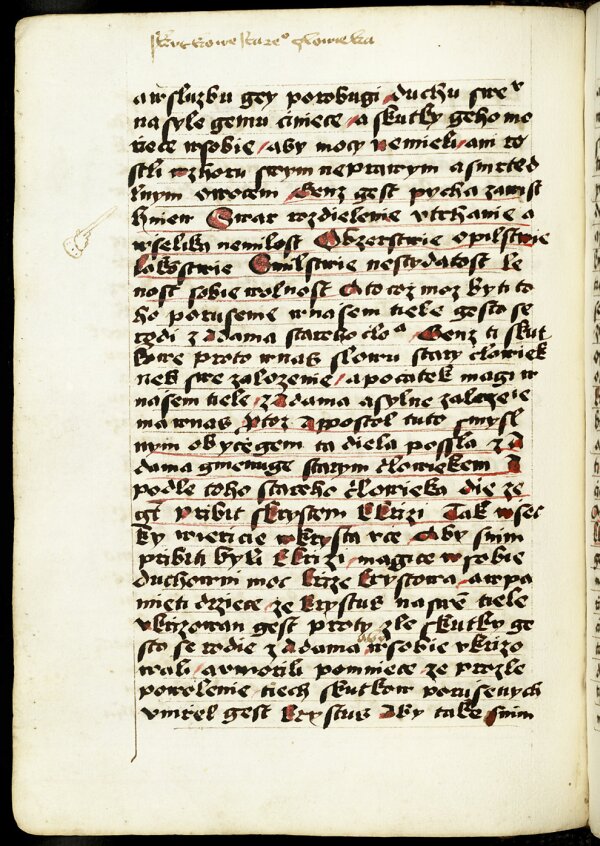 skutkowe stareº cżlowieka
a w sluzbu gey porobugi / duchu swe
na syle gemu ciniece / a skutky geho mo
ciece w sobie / aby mocy nemieli / ani ro
stli wzhoru swym neprawym a smrted
lnym owotem / Genz gest pycha zawist
hniew Swar rozdielenie vtrhanie a
wselika nemilost Obzerstwie opilstwie
lakomstwie Smilstwie nestydatost le
nost sobie wolnost A to coz moz byti to
ho poruseme w nasem tiele gesto se
rodi z adama stareho cloª / Genz ti skut
kowe proto w nas slowu stary clowiek
neb swe zalozenie / a pocatek magi w
nasem tiele / z adama a sylne zalezeie
ma w nas Protoz Apostol tuto smysl
nym obycegem ta diela possla z A
dama gmenuge starym clowiekem A
podle toho stareho clowieka die ze
gt pribit s krystem k krizi Tak wsec
ky wierice w krysta rce / Aby snim
pribiti byli k krizi / magice w sobie
duchowni moc krize krystowa / a w pa
mieti drziece / ze krystus na swe tiele
vkrizowan gest proty zle skutky ge
sto se rodie z adama aby w sobie vkrizo
wali / a vmorili pomniece ze pro zle
powolenie tiech skutkow porusenych
vmrel gest krystus Aby take snim